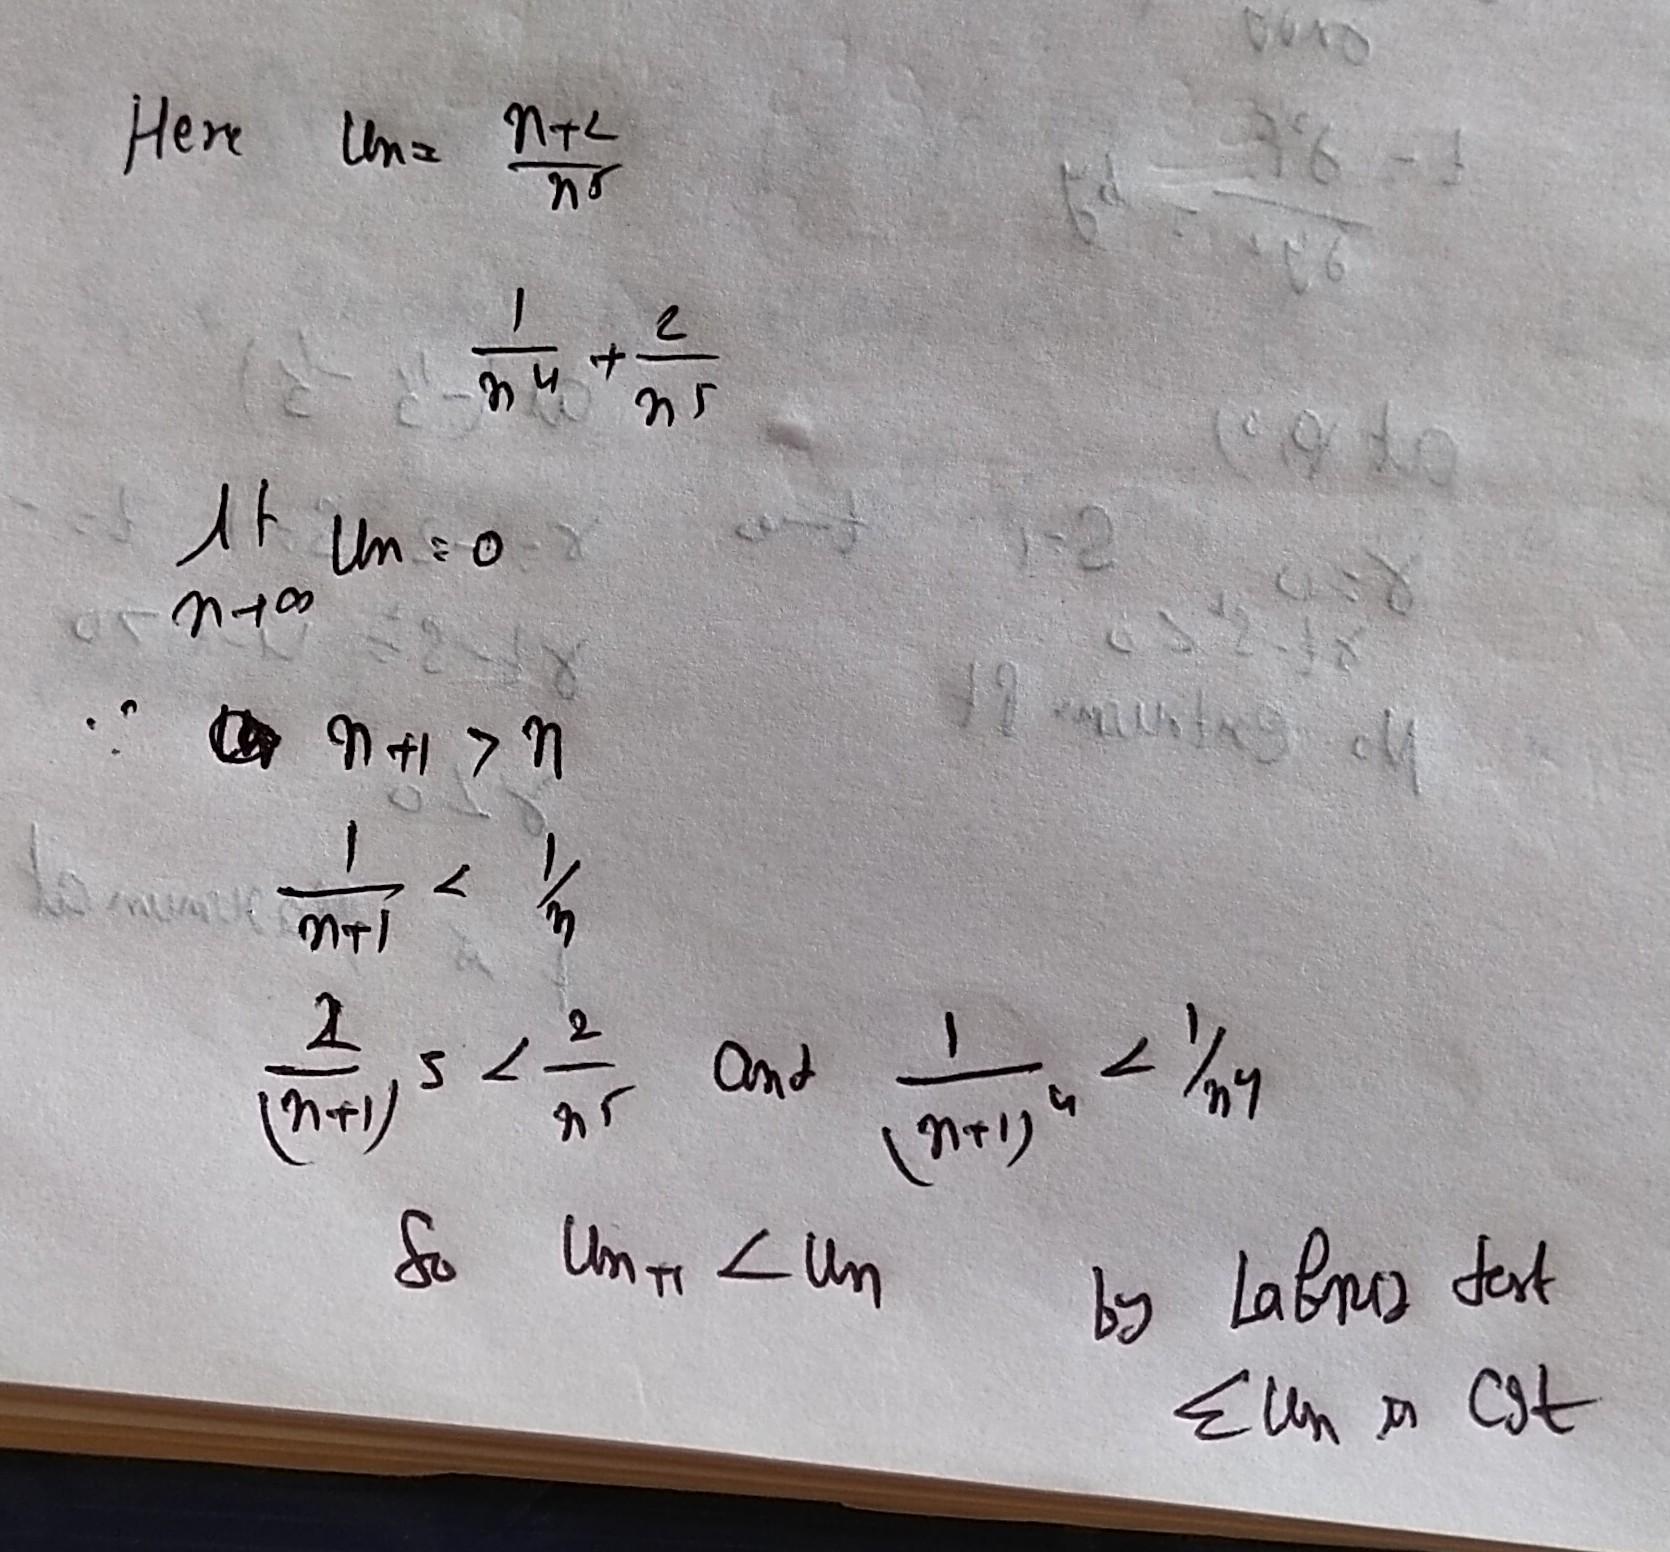 Here Un = n+2/n⁵
1/n⁴ + 2/n⁵
lt n→∞ Un = 0
∵ n+1 > n
1/n+1 < 1/n
2/(n+1)⁵ < 2/n⁵ and 1/(n+1)⁴ < 1/n⁴
So Un+1 < Un
by test
ΣUn is Cgt